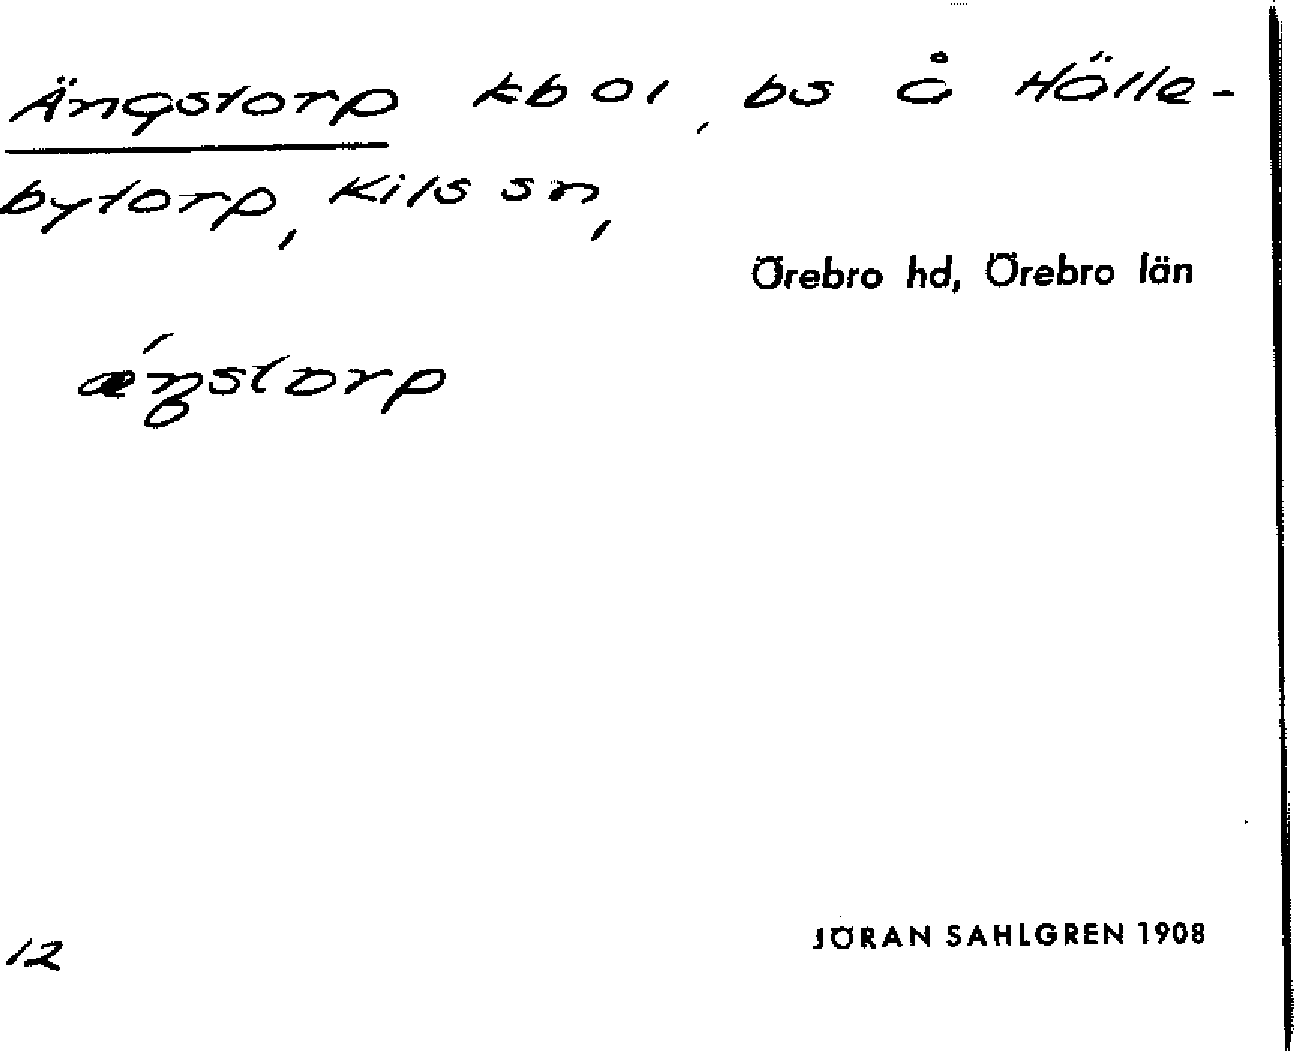 Ängstorp kb 01, bs å Hälle-
bytorp, Kils sn,
Örebro hd, Örebro län
ǽŋstorp
12
JÖRAN SAHLGREN 1908